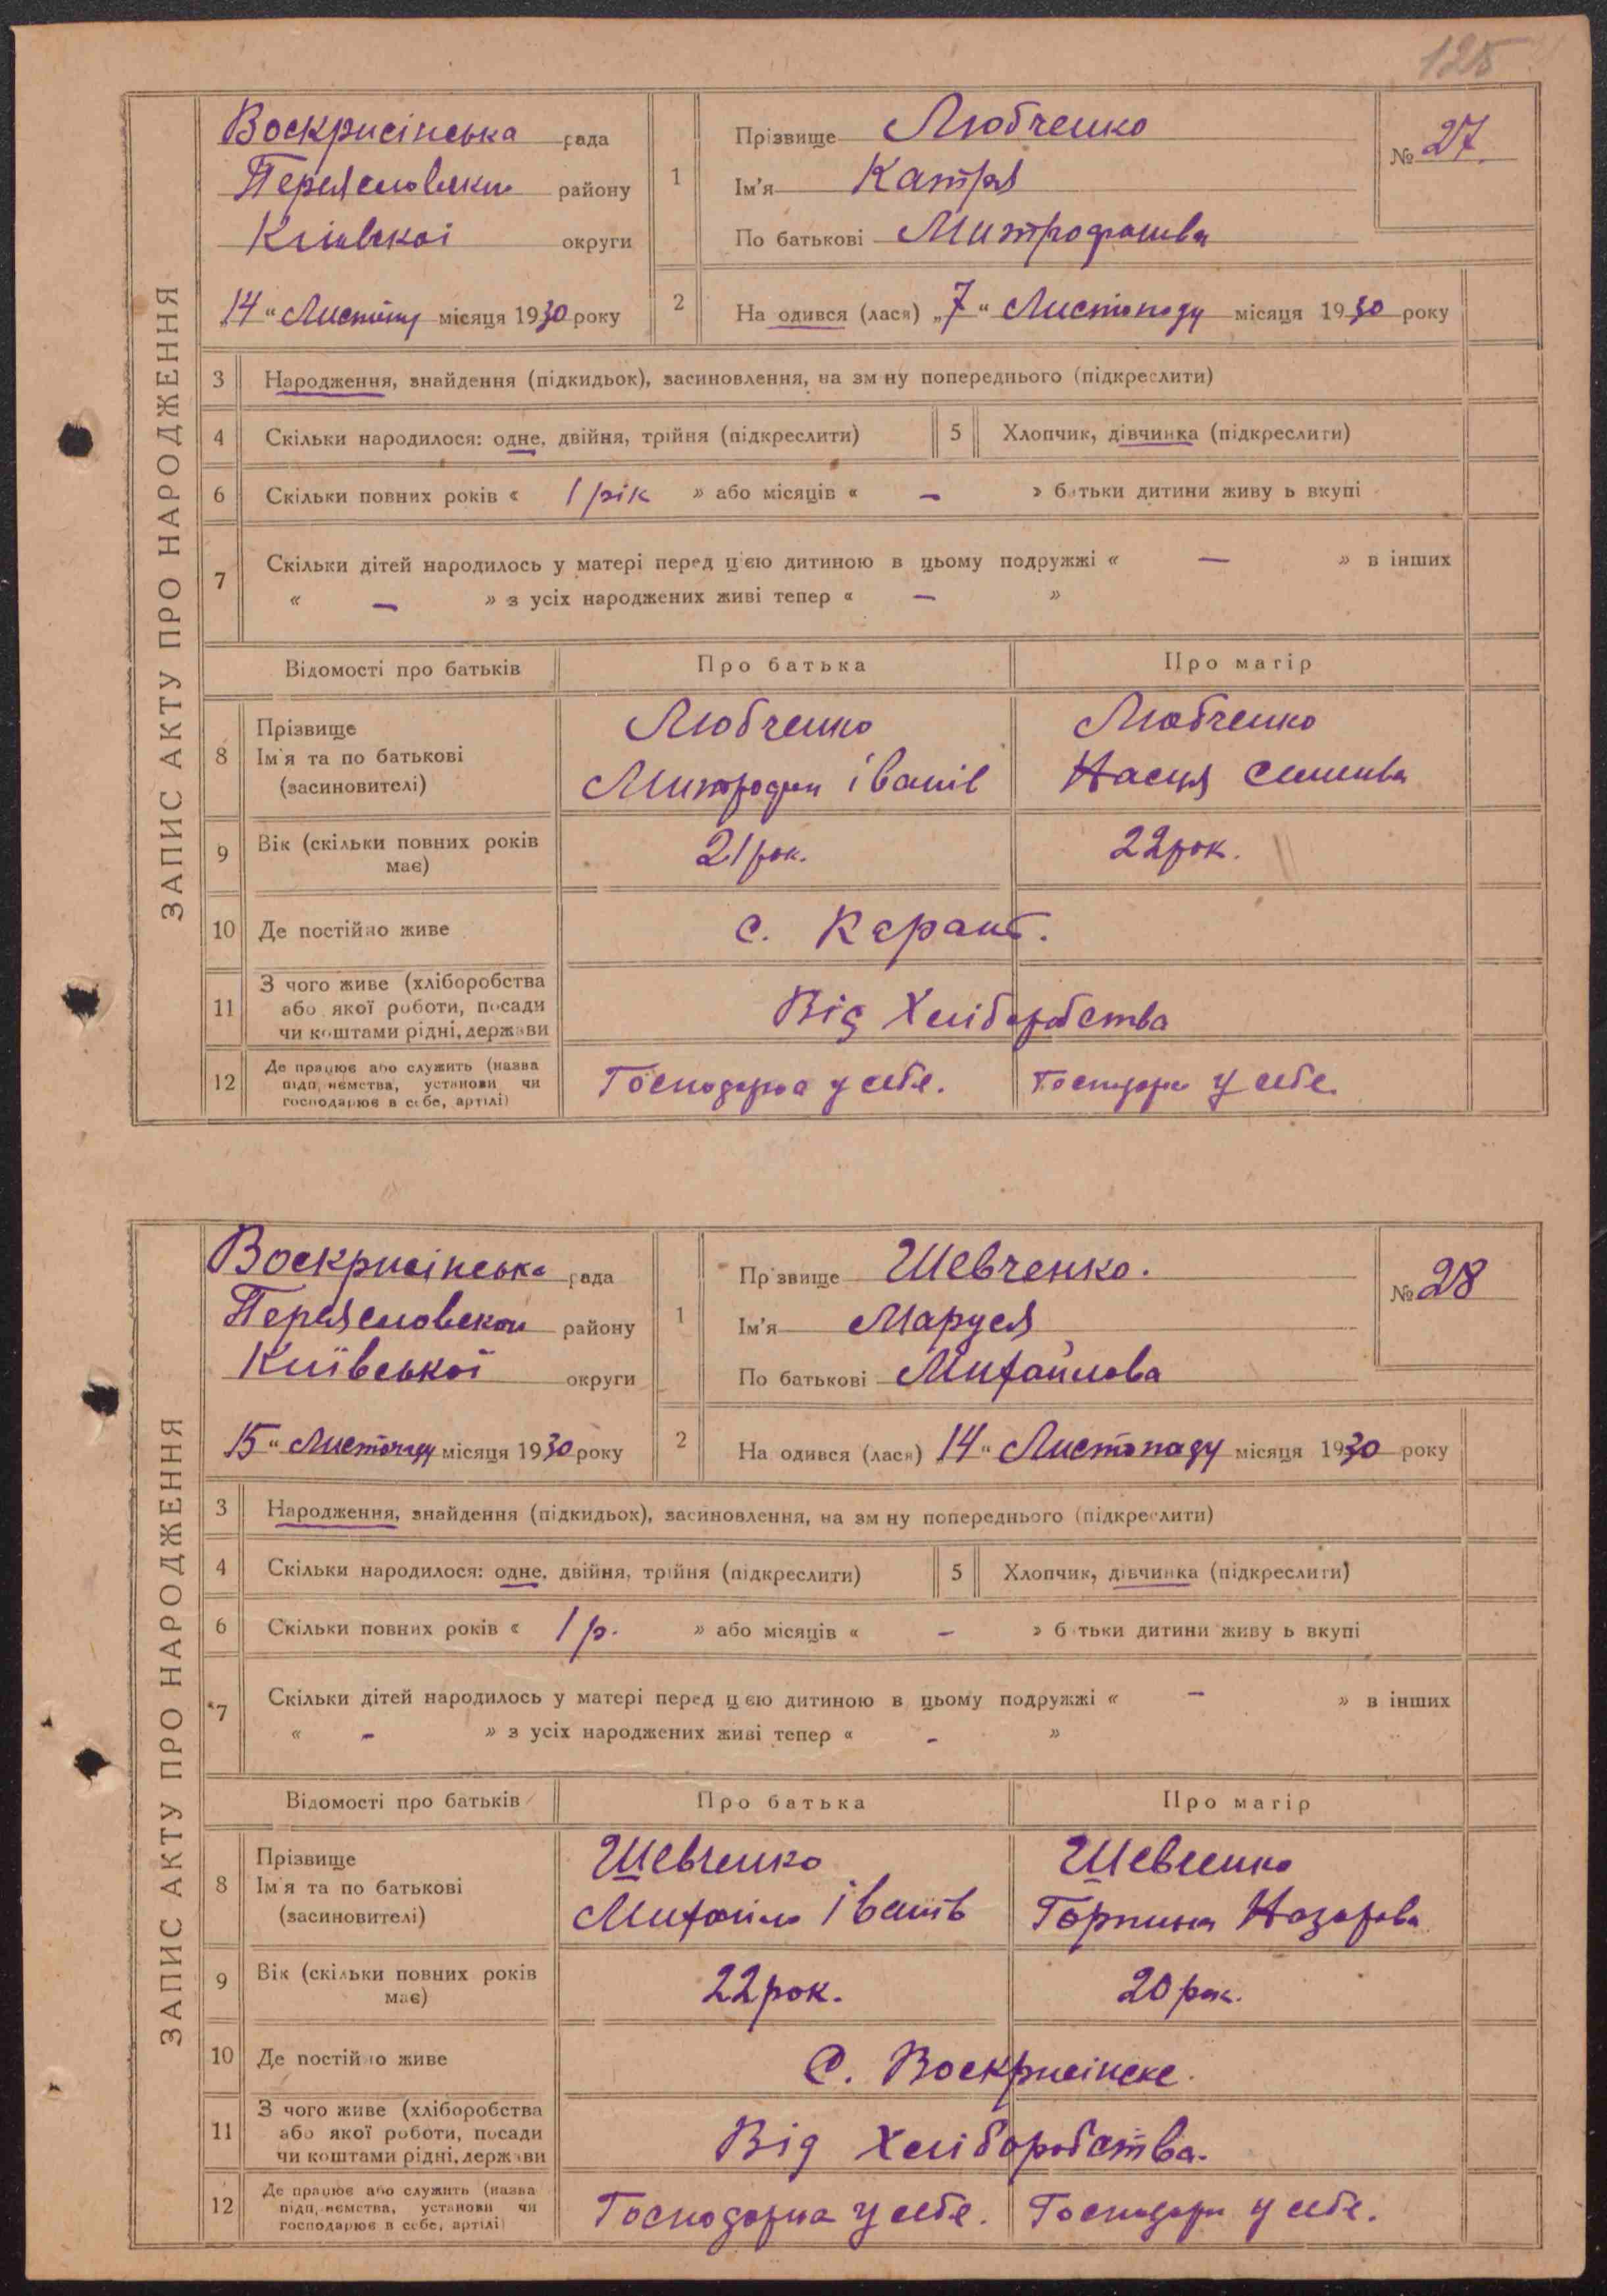 125
ЗАПИС АКТУ ПРО НАРОДЖЕННЯ
Воскрисінська рада
Переясловськи району
Київскої округи
„14“ Листопаду місяця 1930 року
1 Прізвище Любченко
Ім'я Катря
По батькові Митрофанова
№ 27
2 На одився (лася) „7“ Листопаду місяця 1930 року
3 Народження, знайдення (підкидьок), засиновлення, на зм ну попереднього (підкреслити)
4 Скільки народилося: одне, двійня, трійня (підкреслити) 5 Хлопчик, дівчинка (підкреслити)
6 Скільки повних років « 1 рік » або місяців « – » батьки дитини живу ь вкупі
7 Скільки дітей народилось у матері перед цією дитиною в цьому подружжі « — » в інших
« – » з усіх народжених живі тепер « – »
Відомості про батьків Про батька Про матір
8 Прізвище Любченко Любченко
Ім'я та по батькові
(засиновителі) Митрофан Іванів Насця Семенова
9 Вік (скільки повних років
має) 21 рок. 22 рок.
10 Де постійно живе с. Карань.
11 З чого живе (хліборобства
або якої роботи, посади
чи коштами рідні, держави
Від Хліборобства
12 Де працює або служить (назва
підп, немства, установи чи
господарює в себе, артілі)
Господарка у себе. Господарк у себе.
ЗАПИС АКТУ ПРО НАРОДЖЕННЯ
Воскрисінська рада
Переясловской району
Київської округи
15“ Листопаду місяця 1930 року
1 Пр звище Шевченко.
Ім'я Маруся
По батькові Михайлова
№ 28
2 На одився (лася) 14“ Листопаду місяця 1930 року
3 Народження, знайдення (підкидьок), засиновлення, на зм ну попереднього (підкреслити)
4 Скільки народилося: одне, двійня, трійня (підкреслити) 5 Хлопчик, дівчинка (підкреслити)
6 Скільки повних років « 1 р. » або місяців « – » б тьки дитини живу ь вкупі
7 Скільки дітей народилось у матері перед ц ею дитиною в цьому подружжі « – » в інших
« – » з усіх народжених живі тепер « – »
Відомості про батьків Про батька Про матір
8 Прізвище Шевченко Шевченко
Ім'я та по батькові
(засиновителі) Михайло Іванів Горпина Назарова
9 Вік (скільки повних років
має) 22 рок. 20 рок.
10 Де постійно живе С. Воскрисінске.
11 З чого живе (хліборобства
або якої роботи, посади
чи коштами рідні, держави
Від Хліборобства.
12 Де працює або служить (назва
підп, немства, установи чи
господарює в себе, артілі)
Господарка у себе. Господарк у себе.